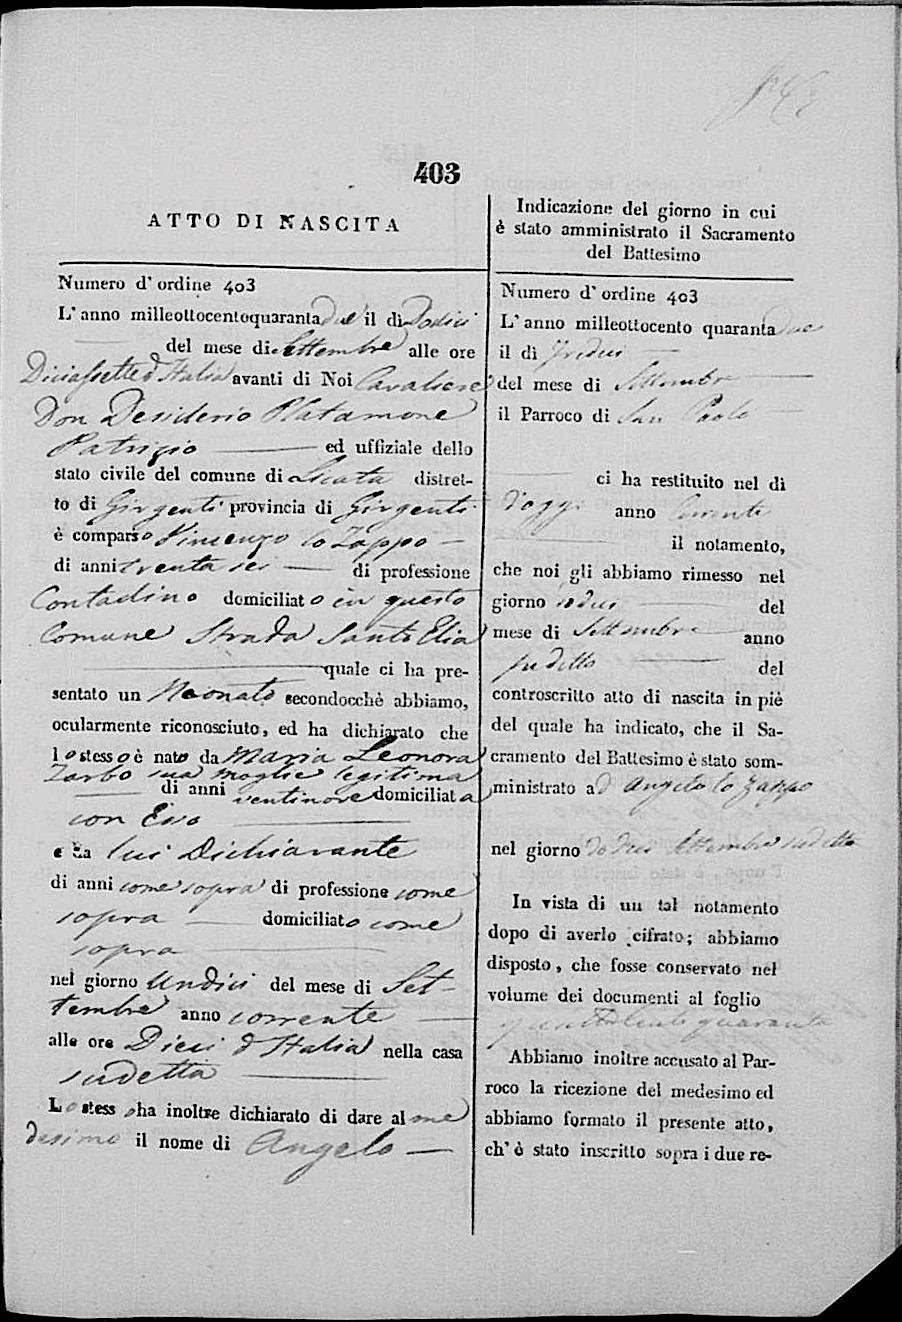 403
ATTO DI NASCITA
Numero d'ordine 403
L'anno milleottocentoquaranta due il dì Dodici
del mese di Settembre alle ore
Diciassette d'Italia avanti di Noi Cavaliere
Don Desiderio Platamone
Patrizio ed uffiziale dello
stato civile del comune di Licata distret-
to di Girgenti provincia di Girgenti
è comparso Vincenzo lo Zappo
di anni trenta sei di professione
Contadino domiciliato in questo
Comune Strada Sant'Elia
quale ci ha pre-
sentato un Neonato secondocchè abbiamo,
ocularmente riconosciuto, ed ha dichiarato che
lo stesso è nato da Maria Leonora
Zarbo sua moglie legitima
di anni ventinove domiciliata
con Esso
e da lui Dichiarante
di anni come sopra di professione come
sopra domiciliato come
sopra
nel giorno Undici del mese di Set-
tembre anno corrente
alle ore Dieci d'Italia nella casa
sudetta
Lo stesso ha inoltre dichiarato di dare al me
desimo il nome di Angelo
Indicazione del giorno in cui
è stato amministrato il Sacramento
del Battesimo
Numero d'ordine 403
L'anno milleottocento quaranta due
il dì Tredici
del mese di Settembre
il Parroco di San Paolo
ci ha restituito nel dì
d'oggi anno corrente
il notamento,
che noi gli abbiamo rimesso nel
giorno dodici del
mese di Settembre anno
sudetto del
controscritto atto di nascita in piè
del quale ha indicato, che il Sa-
cramento del Battesimo è stato som-
ministrato ad Angelo lo Zappo
nel giorno dodici Settembre sudetto
In vista di un tal notamento
dopo di averlo cifrato; abbiamo
disposto, che fosse conservato nel
volume dei documenti al foglio
quaranta
Abbiamo inoltre accusato al Par-
roco la ricezione del medesimo ed
abbiamo formato il presente atto,
ch'è stato inscritto sopra i due re-